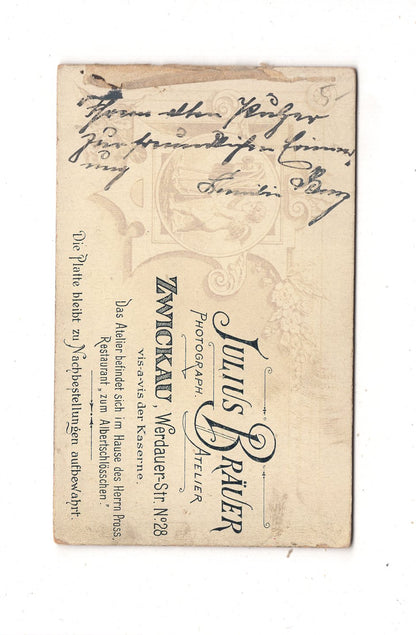 zur freundlichen Erinner
ung Familie
JULIUS BRÄUER
PHOTOGRAPH. ATELIER
ZWICKAU, Werdauer-Str. No 28
vis-a-vis der Kaserne.
Das Atelier befindet sich im Hause des Herrn Pross,
Restaurant „zum Albertschlösschen."
Die Platte bleibt zu Nachbestellungen aufbewahrt.